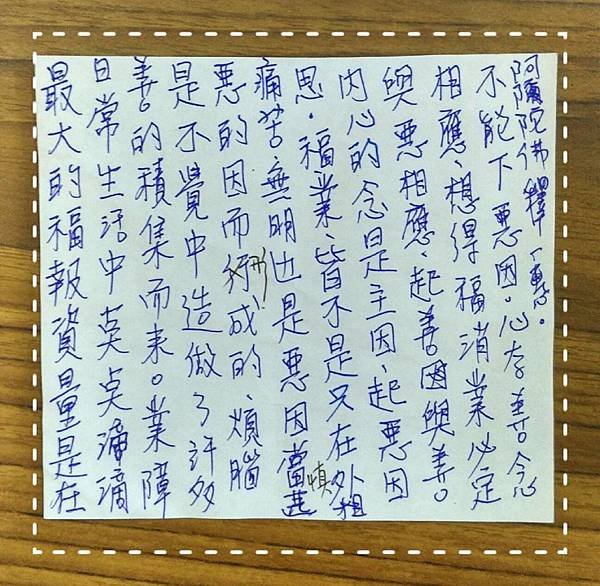 最大的福報資量是在
日常生活中奌奌滴滴
善的積集而来。業障
是不覺中造做了許多
惡的因而形成的、煩腦
痛苦無明也是惡因當慎
思。福業皆不是只在外相
内心的念是主因、起惡因
與惡相應、起善因與善。
相應、想得福消業必定
不能下惡因。心存善念
阿彌陀佛釋一慧。